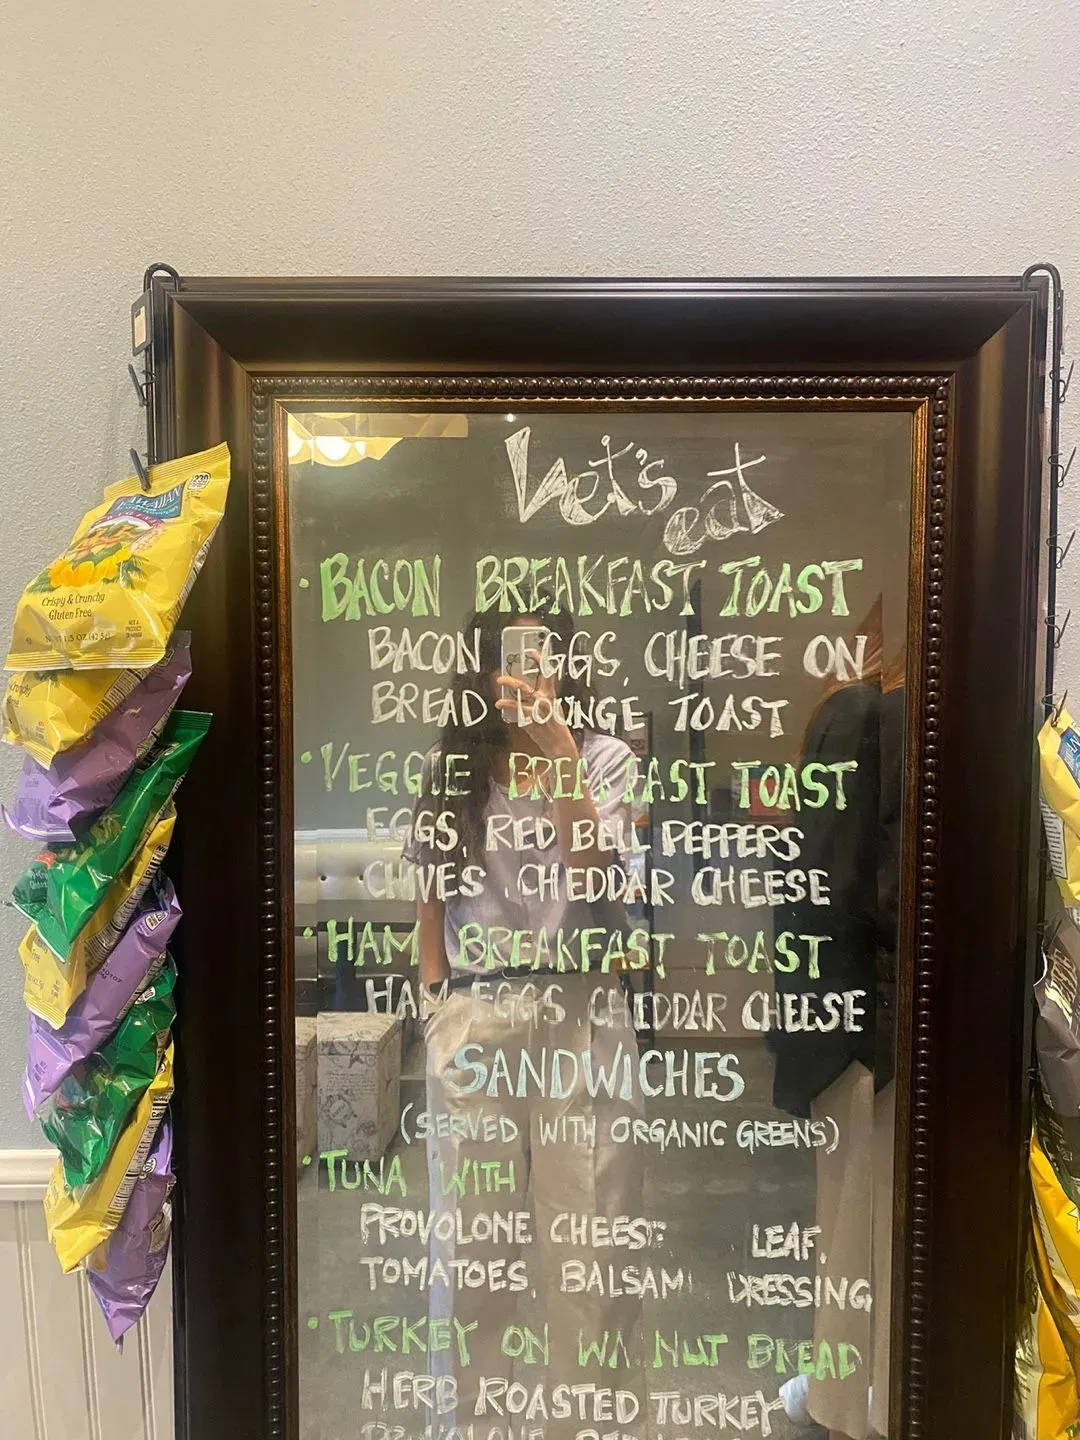 Let's
eat
• BACON BREAKFAST TOAST
BACON EGGS, CHEESE ON
BREAD LOUNGE TOAST
• VEGGIE BREAKFAST TOAST
EGGS, RED BELL PEPPERS
CHIVES, CHEDDAR CHEESE
• HAM BREAKFAST TOAST
HAM EGGS, CHEDDAR CHEESE
SANDWICHES
(SERVED WITH ORGANIC GREENS)
• TUNA WITH
PROVOLONE CHEESE LEAF,
TOMATOES, BALSAMI DRESSING,
• TURKEY ON WA NUT BREAD
HERB ROASTED TURKEY
HAWAIIAN
Crispy & Crunchy
Gluten Free
NOT A
PRODUCT
OF HAWAII
NET WT. 1.5 OZ (42.5g)
230